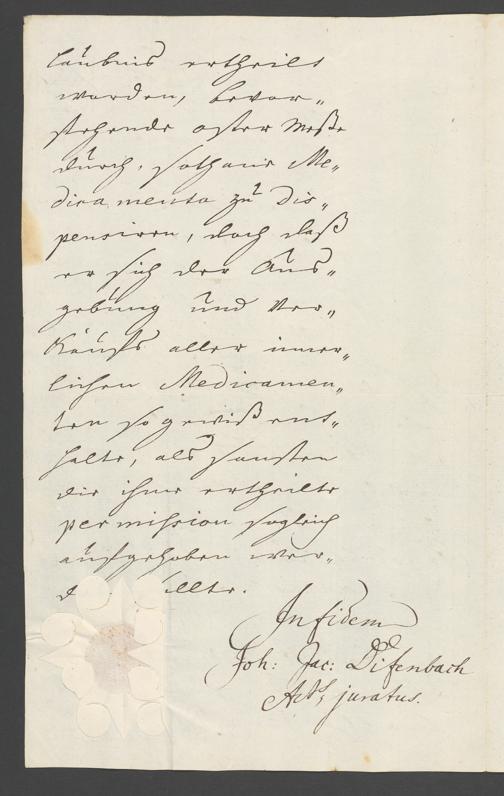 laubnis ertheilt
worden, bevor„
stehende oster Meße
durch, sothane Me„
dicamenta zu dis„
pensiren, doch daß
er sich der Aus„
gebung und Ver„
Kaufs aller inner„
lichen Medicamen„
ten so gewiß ent„
halte, als sonsten
die ihme ertheilte
permission sogleich
aufgehoben wer„
sollte.
In fidem
Joh: Jac: Difenbach
juratus.